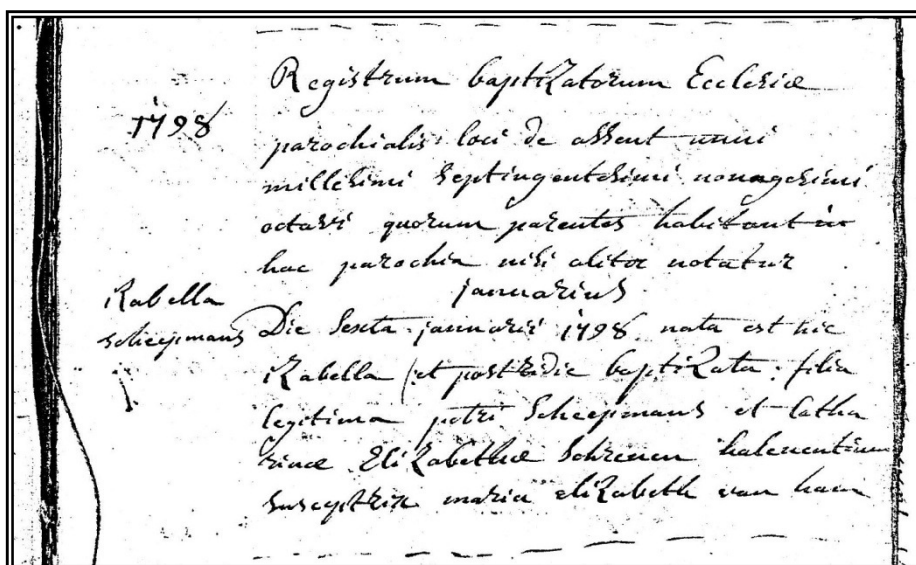 Registrum baptizatorum Ecclesiæ
1798
parochialis loci de assent anni
millesimi septingentesimi nonagesimi
octavi quorum parentes habitant in
hac parochia nisi aliter notatur
januarius
Izabella
scheepmans
1.
Die sexta januarii 1798 nata est hic
izabella (et postridie baptizata. filia
legitima petri Scheepmans et Catha
rinæ Elizabethæ Schreven halenentium
susceptrix maria elizabeth van ham